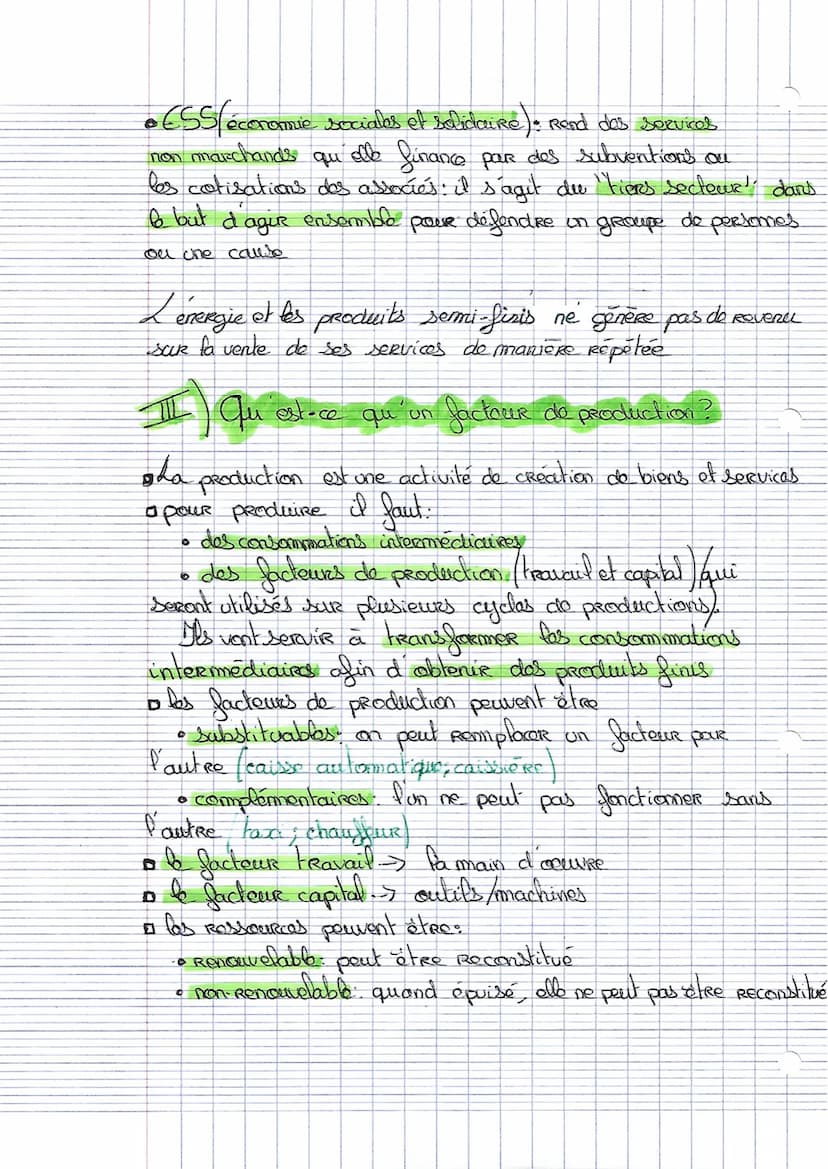 • ESS (économie sociales et solidaire): Rend des services
non marchands qu'elle finance par des subventions ou
les cotisations des associés: il s'agit du "tiers secteur" dans
le but d'agir ensemble pour défendre un groupe de personnes
ou une cause
L'énergie et les produits semi-finis ne génère pas de revenu
sur la vente de ses services de manière répétée
III) Qu'est-ce qu'un facteur de production?
▫ La production est une activité de création de biens et services
▫ pour produire il faut:
• des consommations intermédiaires
• des facteurs de production (travail et capital) (qui
seront utilisés sur plusieurs cycles de productions).
Ils vont servir à transformer les consommations
intermédiaires afin d'obtenir des produits finis
▫ les facteurs de production peuvent être
• substituables: on peut remplacer un facteur par
l'autre (caisse automatique; caissière)
• complémentaires: l'un ne peut pas fonctionner sans
l'autre (taxi; chauffeur)
▫ le facteur travail -> la main d'œuvre
▫ le facteur capital -> outils/machines
▫ les ressources peuvent être:
• renouvelable: peut être reconstitué
• non-renouvelable: quand épuisé, elle ne peut pas être reconstitué